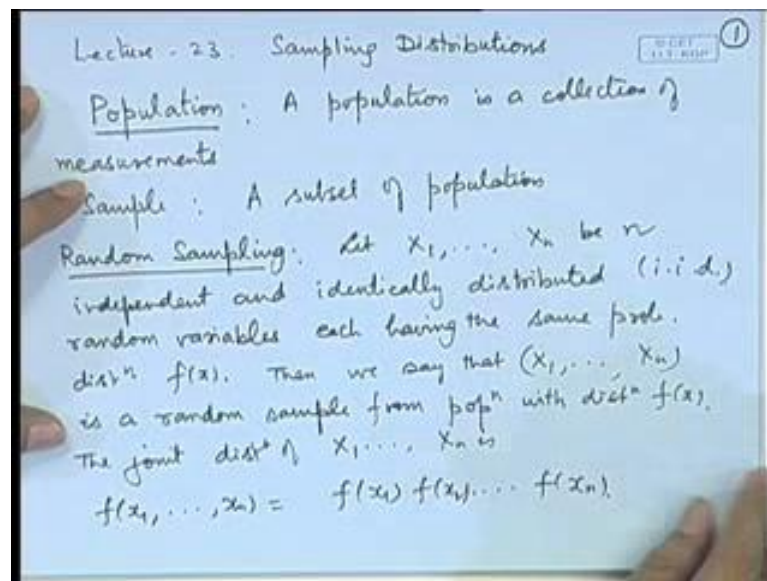 Lecture - 23. Sampling Distributions
①
Population : A population is a collection of
measurements
Sample : A subset of population
Random Sampling: Let X₁, ..., Xₙ be n
independent and identically distributed (i.i.d.)
random variables each having the same prob.
distⁿ f(x). Then we say that (X₁, ..., Xₙ)
is a random sample from popⁿ with distⁿ f(x).
The joint distⁿ of X₁, ..., Xₙ is
f(x₁, ..., xₙ) = f(x₁) f(x₂) .... f(xₙ).